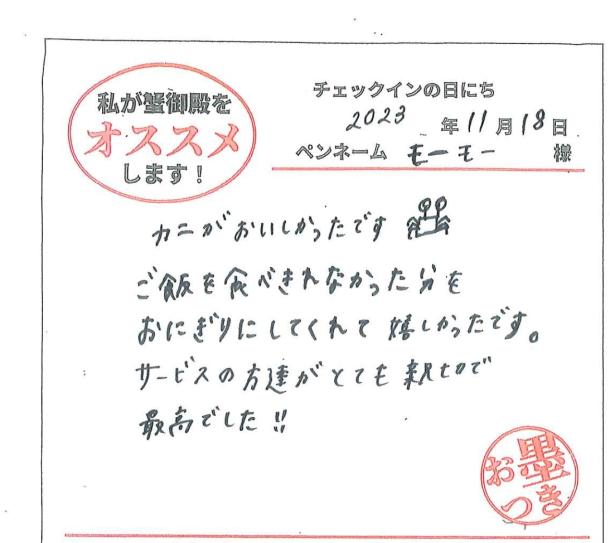 私が蟹御殿を
オススメ
します!
チェックインの日にち
2023年11月18日
ペンネーム モーモー 様
カニがおいしかったです
ご飯を食べきれなかった分を
おにぎりにしてくれて嬉しかったです。
サービスの方達がとても親切で
最高でした!!
お墨
つき